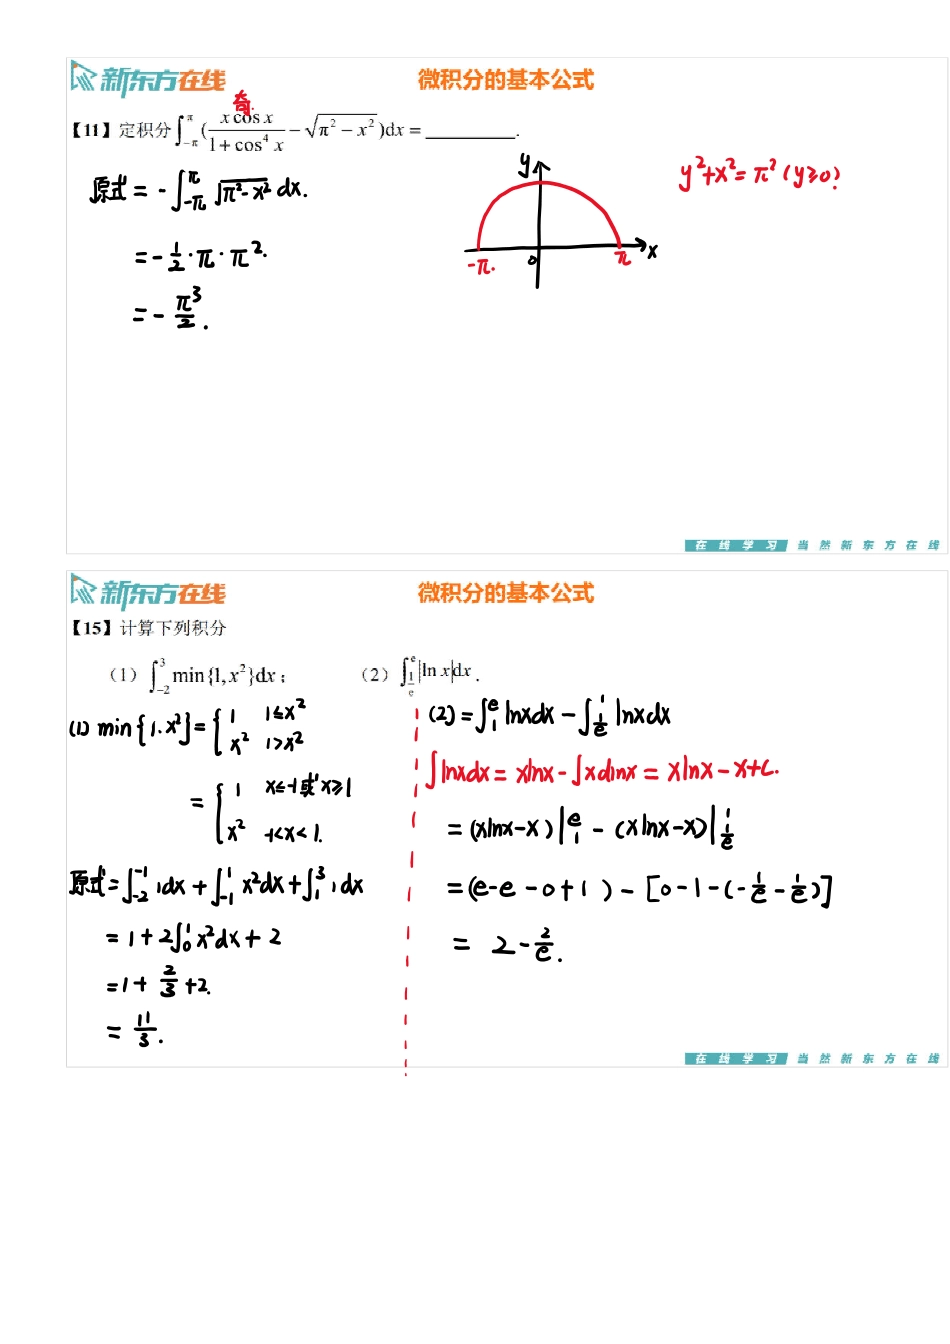 新东方在线 微积分的基本公式
奇.
【11】定积分 ∫_{-π}^{π} ( x cos x / (1 + cos⁴ x) − √(π² − x²) )dx = ________.
原式 = - ∫_{-π}^{π} √(π²-x²) dx.
= - 1/2 · π · π².
= - π³/2 .
y
x
0
-π.
π
y²+x² = π² (y≥0).
在线学习 当然新东方在线
新东方在线 微积分的基本公式
【15】计算下列积分
（1）∫_{-2}^{3} min{1, x²}dx； （2）∫_{1/e}^{e} |ln x|dx .
(1) min{1. x²} = { 1 1≤x²
x² 1>x²
= { 1 x≤-1或x≥1
x² -1<x<1.
原式 = ∫_{-2}^{-1} 1dx + ∫_{-1}^{1} x²dx + ∫_{1}^{3} 1dx
= 1 + 2∫_{0}^{1} x²dx + 2
= 1 + 2/3 + 2.
= 11/3 .
(2) = ∫_{1}^{e} lnxdx − ∫_{1/e}^{1} lnxdx
∫lnxdx = xlnx - ∫xdlnx = xlnx − x+C.
= (xlnx−x)|_{1}^{e} − (xlnx−x)|_{1/e}^{1}
= (e-e -0+1) − [0-1-(-1/e - 1/e)]
= 2 - 2/e .
在线学习 当然新东方在线